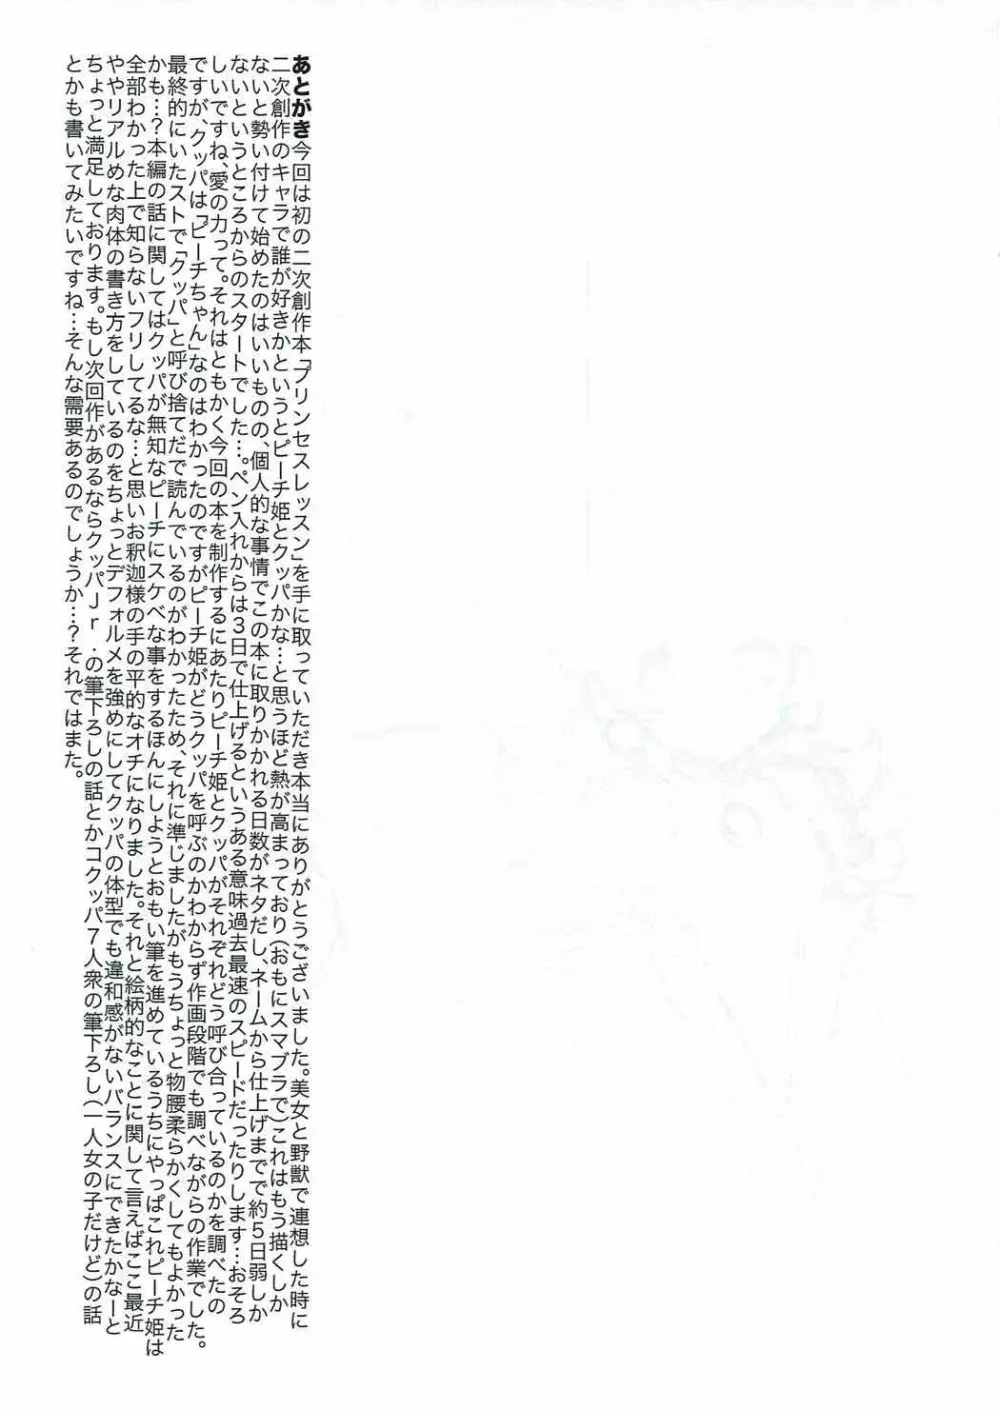 あとがき今回は初の二次創作本「プリンセスレッスン」を手に取っていただき本当にありがとうございました。美女と野獣で連想した時に
二次創作のキャラで誰が好きかというとピーチ姫とクッパかな…と思うほど熱が高まっており(おもにスマブラで)これはもう描くしか
ないと勢い付けて始めたのはいいものの、個人的な事情でこの本に取りかかれる日数がネタだし、ネームから仕上げまでで約5日弱しか
ないというところからのスタートでした…。ペン入れからは3日で仕上げるというある意味過去最速のスピードだったりします…おそろ
しいですね、愛の力って。それはともかく今回の本を制作するにあたりピーチ姫とクッパがそれぞれどう呼び合っているのかを調べたの
ですが、クッパは「ピーチちゃん」なのはわかったのですがピーチ姫がどうクッパを呼ぶのかわからず作画段階でも調べながらの作業でした。
最終的にいたストで「クッパ」と呼び捨てだで読んでいるのがわかったため、それに準じましたがもうちょっと物腰柔らかくしてもよかった
かも…?本編の話に関してはクッパが無知なピーチにスケベな事をするほんにしようとおもい筆を進めているうちにやっぱこれピーチ姫は
全部わかった上で知らないフリしてるな…と思いお釈迦様の手の平的なオチになりました。それと絵柄的なことに関して言えばここ最近
ややリアルめな肉体の書き方をしているのをちょっとデフォルメを強めにしてクッパの体型でも違和感がないバランスにできたかなーと
ちょっと満足しております。もし次回作があるならクッパJr.の筆下ろしの話とかコクッパ7人衆の筆下ろし(一人女の子だけど)の話
とかも書いてみたいですね…そんな需要あるのでしょうか…?それではまた。